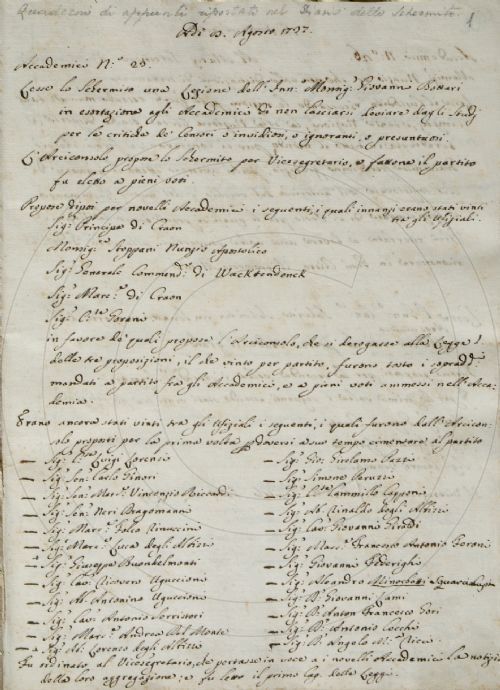 Quaderni di appunti riportati nel Diario dello Schermito.
1
Adì 8. Agosto 1737.
Accademici N.º 25.
Lesse lo Schermito una Lezione dell' Inn. Monsig. Giovanni Bottari
in esortazione agli Accademici di non lasciarsi sviare dagli Studj
per la critica de' Censori o invidiosi, o ignoranti, o presuntuosi.
L'Arciconsolo propose lo Schermito per Vicesegretario, e fattone il partito
fu eletto a pieni voti.
Propose dipoi per novelli Accademici i seguenti, i quali innanzi erano stati vinti
tra gli Ufiziali.
Sig.r Principe di Craon
Monsig.r Stoppani Nunzio Apostolico
Sig.r Generale Commend.r di Wachtendonck
Sig.r Marc.e di Craon
Sig.r C.te Lorenzi
in favore de' quali propose l'Arciconsolo, che si derogasse alla Legge
delle tre proposizioni, il che vinto per partito, furono tosto i sopradd.
mandati a partito fra gli Accademici, e a pieni voti ammessi nell' Acca-
demia.
Erano ancora stati vinti tra gli Ufiziali i seguenti, i quali furono dall' Arcicon-
solo proposti per la prima volta, e doversi a suo tempo cimentare al partito
Sig.r Luigi Lorenzi
Sig.r Sen. Carlo Ginori
Sig.r Sen. Mar. Vincenzio Riccardi
Sig.r Sen. Neri Dragomanni
Sig.r Marc. Folco Rinuccini
Sig.r Marc. Luca degli Albizi
Sig.r Giuseppe Buondelmonti
Sig.r Cav. Ricovero Uguccioni
Sig.r Ab. Antonino Uguccioni
Sig.r Cav. Antonio Serristori
Sig.r Marc. Andrea Del Monte
Sig.r Ab. Lorenzo degli Albizi
Sig.r Gio. Girolamo Pazzi
Sig.r Simone Peruzzi
Sig.r Cammillo Capponi
Sig.r Ab. Rinaldo degli Albizi
Sig.r Cav. Giovanni
Sig.r Marc. Francesco Antonio Feroni
Sig.r Giovanni Federighi
Sig.r Alessandro Minerbetti Guardavilla
Sig.r D. Giovanni Lami
Sig.r D. Anton Francesco Gori
Sig.r D. Antonio Cocchi
Sig.r D. Angelo M. Ricci
Fu ordinato al Vicesegretario, che portasse in voce a i novelli Accademici la notizia
della loro aggregazione: e fu letto il primo Cap. delle Leggi.